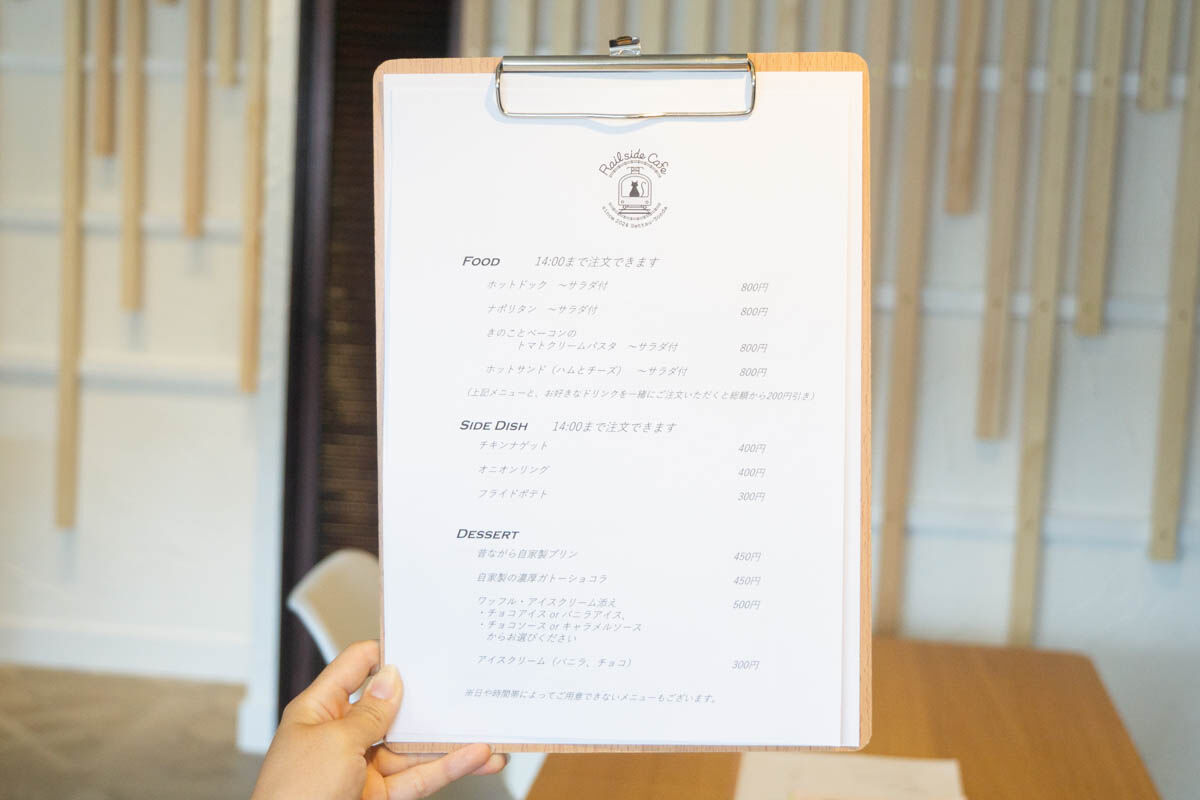 Railside Cafe
since 2024 Settsu-Tonda
FOOD 14:00まで注文できます
ホットドック ～サラダ付 800円
ナポリタン ～サラダ付 800円
きのことベーコンの
トマトクリームパスタ ～サラダ付 800円
ホットサンド（ハムとチーズ） ～サラダ付 800円
（上記メニューと、お好きなドリンクを一緒にご注文いただくと総額から200円引き）
SIDE DISH 14:00まで注文できます
チキンナゲット 400円
オニオンリング 400円
フライドポテト 300円
DESSERT
昔ながら自家製プリン 450円
自家製の濃厚ガトーショコラ 450円
ワッフル・アイスクリーム添え 500円
・チョコアイス or バニラアイス、
・チョコソース or キャラメルソース
からお選びください
アイスクリーム（バニラ、チョコ） 300円
※日や時間帯によってご用意できないメニューもございます。